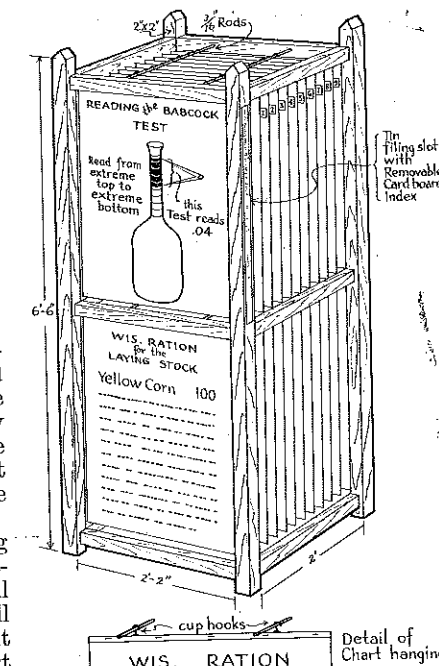 2"x2"
3/16" Rods
READING the BABCOCK
TEST
Read from
extreme
top to
extreme
bottom
this
Test reads
.04
1 2 3 4 5 6 7 8 9
Tin
filing slot
with
Removable
Card board
Index
6'-6"
WIS. RATION
for the
LAYING STOCK
Yellow Corn 100
2'-2"
2'
cup hooks
WIS. RATION
Detail of
Chart hanging